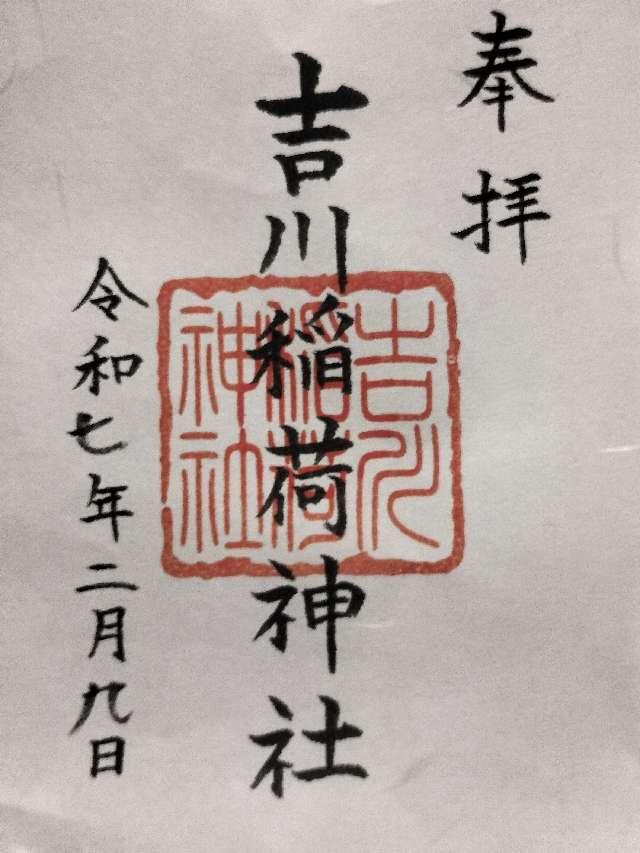 奉拝
吉川稲荷神社
吉川
稲荷
神社
令和七年二月九日